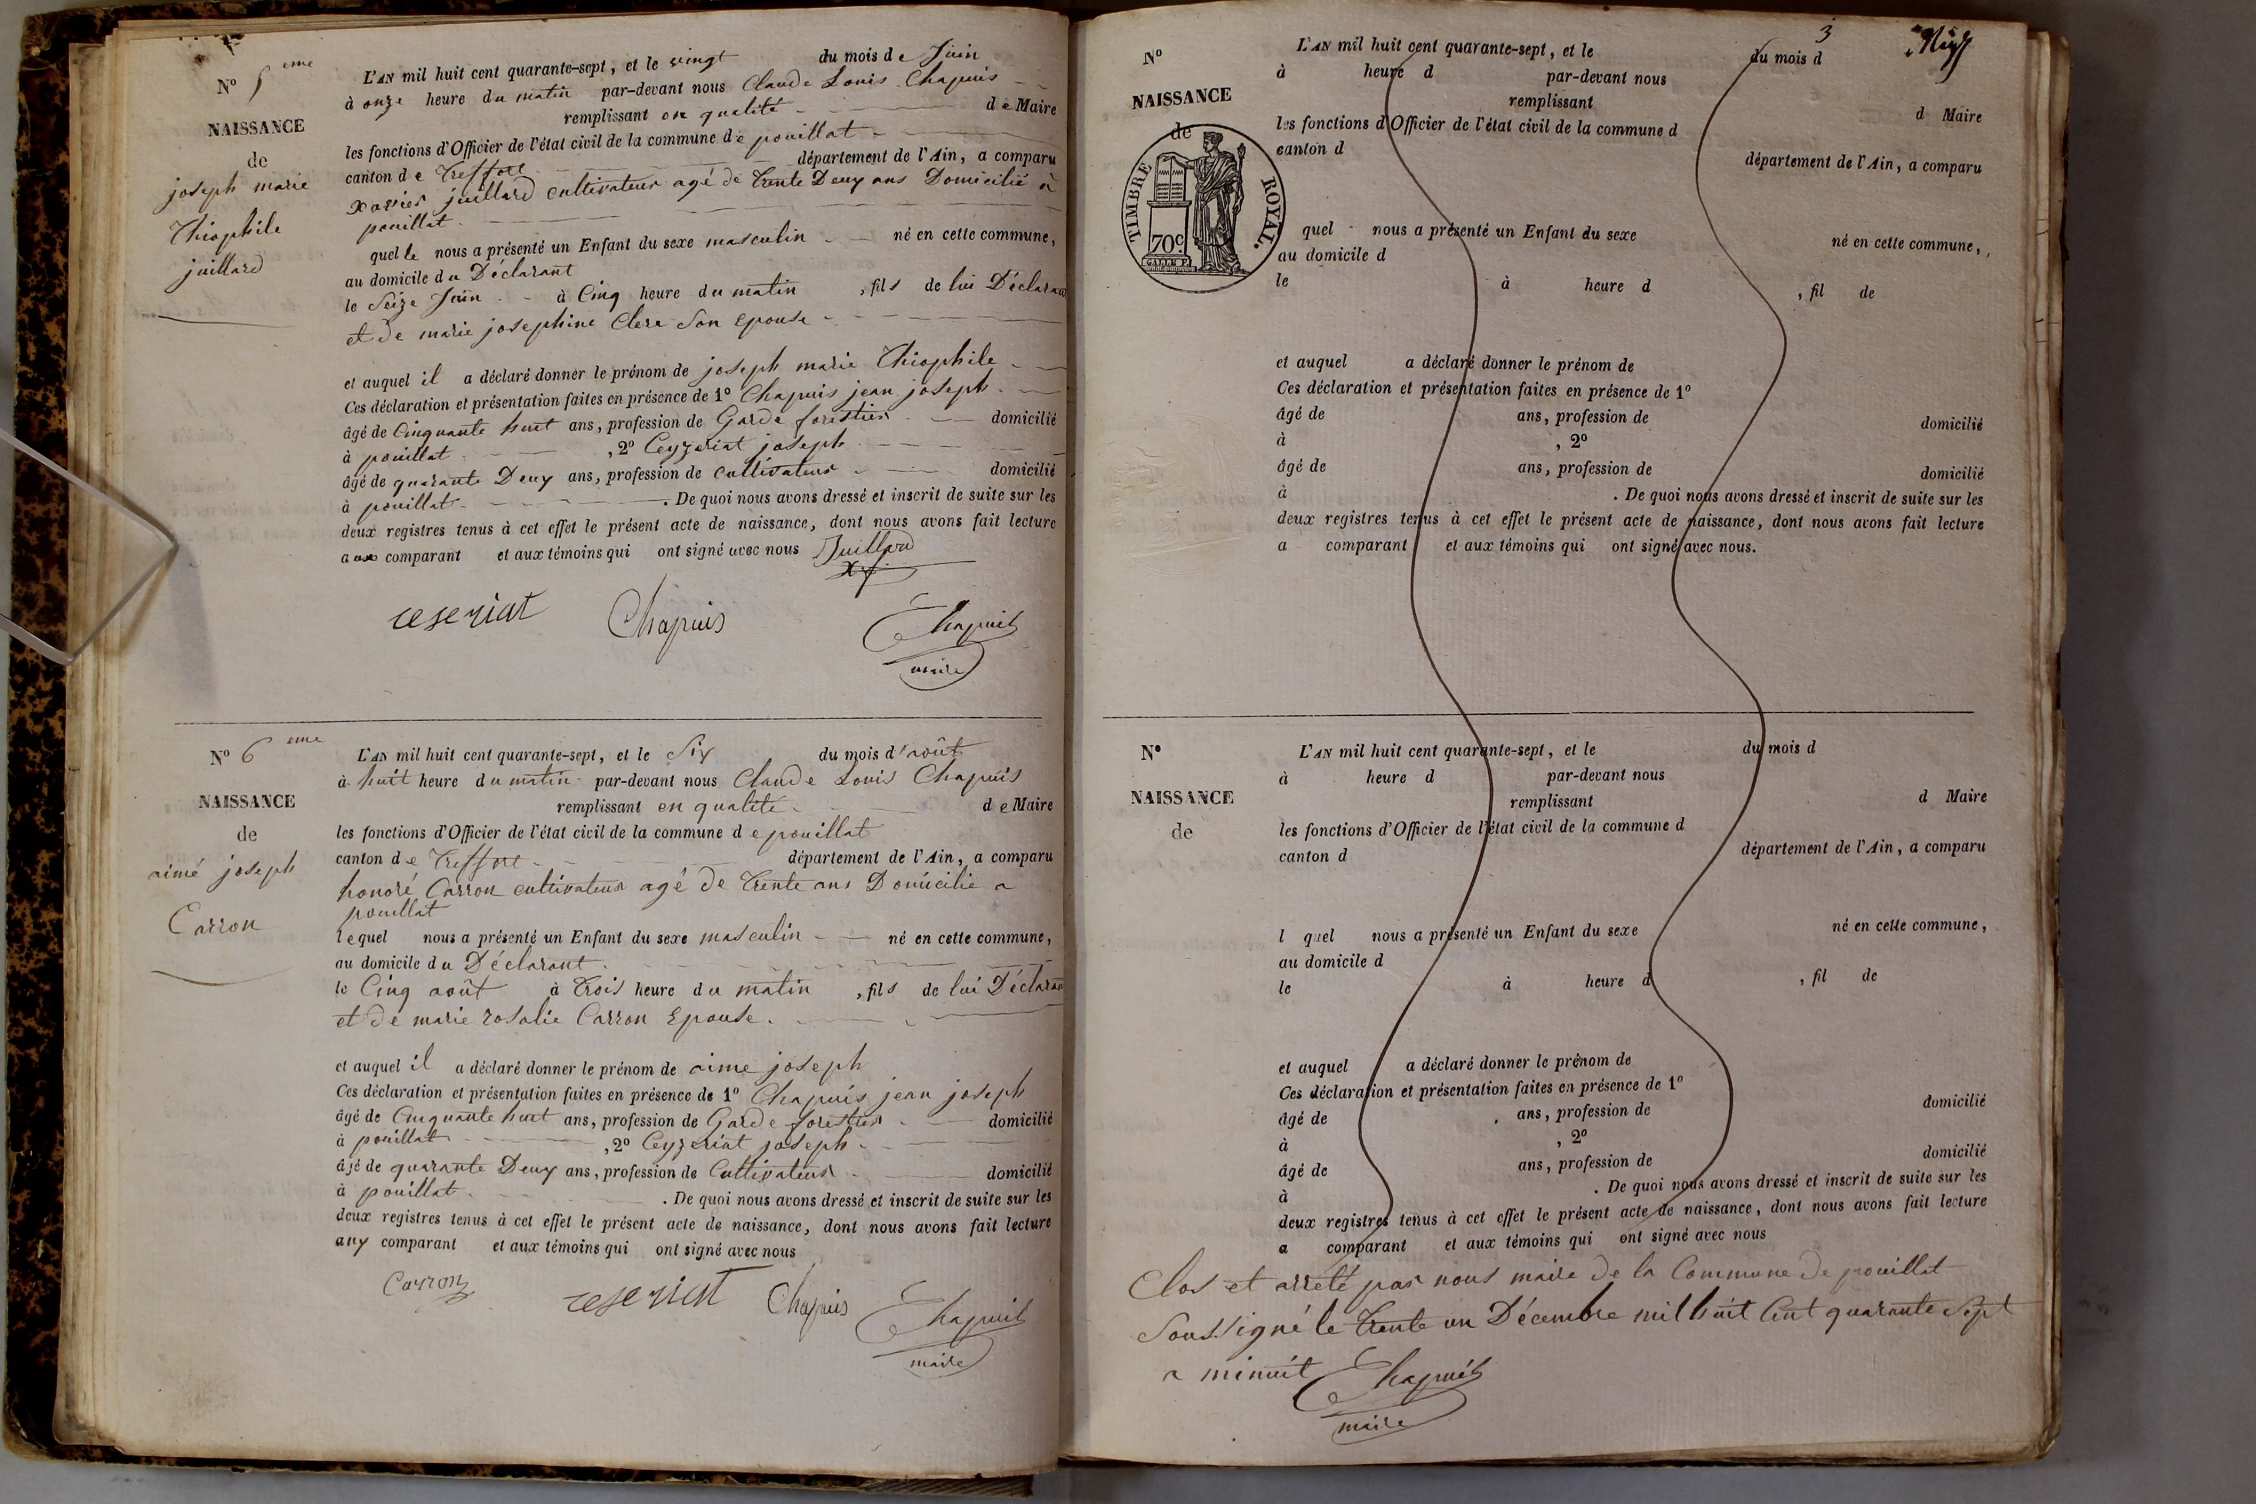 N° 5 eme
NAISSANCE
de
joseph marie
Théophile
juillard
L'AN mil huit cent quarante-sept, et le vingt du mois de Juin
à onze heure du matin par-devant nous Claude Louis Chapuis
remplissant en qualité de Maire
les fonctions d'Officier de l'état civil de la commune de pouillat
canton de Treffort département de l'Ain, a comparu
xavier juillard cultivateur agé de trente Deux ans Domicilié à
pouillat
quel le nous a présenté un Enfant du sexe masculin né en cette commune,
au domicile du Déclarant
le Seize Juin à Cinq heure du matin, fils de lui Déclarant
et de marie josephine Clerc Son epouse
et auquel il a déclaré donner le prénom de joseph marie Théophile
Ces déclaration et présentation faites en présence de 1° Chapuis jean joseph
âgé de Cinquante huit ans, profession de Garde forestier domicilié
à pouillat, 2° Ceyzeriat joseph
âgé de quarante Deux ans, profession de cultivateur domicilié
à pouillat. De quoi nous avons dressé et inscrit de suite sur les
deux registres tenus à cet effet le présent acte de naissance, dont nous avons fait lecture
aux comparant et aux témoins qui ont signé avec nous Juillard
ceseriat Chapuis Chapuis
maire
N° 6 eme
NAISSANCE
de
aimé joseph
Carron
L'AN mil huit cent quarante-sept, et le Six du mois d'août
à huit heure du matin par-devant nous Claude Louis Chapuis
remplissant en qualité de Maire
les fonctions d'Officier de l'état civil de la commune de pouillat
canton de Treffort département de l'Ain, a comparu
honoré Carron cultivateur agé de trente ans Domicilié a
pouillat
lequel nous a présenté un Enfant du sexe masculin né en cette commune,
au domicile du Déclarant
le Cinq août à Trois heure du matin, fils de lui Déclarant
et de marie rosalie Carron Epouse.
et auquel il a déclaré donner le prénom de aime joseph
Ces déclaration et présentation faites en présence de 1° Chapuis jean joseph
âgé de Cinquante huit ans, profession de Garde forestier domicilié
à pouillat, 2° Ceyzeriat joseph
âgé de quarante Deux ans, profession de Cultivateur domicilié
à pouillat. De quoi nous avons dressé et inscrit de suite sur les
deux registres tenus à cet effet le présent acte de naissance, dont nous avons fait lecture
aux comparant et aux témoins qui ont signé avec nous
Carron ceseriat Chapuis Chapuis
maire
3
N°
NAISSANCE
de
TIMBRE ROYAL.
70c.
L'AN mil huit cent quarante-sept, et le du mois d
à heure d par-devant nous
remplissant d Maire
les fonctions d'Officier de l'état civil de la commune d
canton d département de l'Ain, a comparu
quel nous a présenté un Enfant du sexe né en cette commune,
au domicile d
le à heure d, fil de
et auquel a déclaré donner le prénom de
Ces déclaration et présentation faites en présence de 1°
âgé de ans, profession de domicilié
à, 2°
âgé de ans, profession de domicilié
à. De quoi nous avons dressé et inscrit de suite sur les
deux registres tenus à cet effet le présent acte de naissance, dont nous avons fait lecture
a comparant et aux témoins qui ont signé avec nous.
N°
NAISSANCE
de
L'AN mil huit cent quarante-sept, et le du mois d
à heure d par-devant nous
remplissant d Maire
les fonctions d'Officier de l'état civil de la commune d
canton d département de l'Ain, a comparu
l quel nous a présenté un Enfant du sexe né en cette commune,
au domicile d
le à heure d, fil de
et auquel a déclaré donner le prénom de
Ces déclaration et présentation faites en présence de 1°
âgé de ans, profession de domicilié
à, 2°
âgé de ans, profession de domicilié
à. De quoi nous avons dressé et inscrit de suite sur les
deux registres tenus à cet effet le présent acte de naissance, dont nous avons fait lecture
a comparant et aux témoins qui ont signé avec nous
Clos et arrêté par nous maire de la Commune de pouillat
Soussigné le trente un Décembre mil huit Cent quarante Sept
a minuit Chapuis
maire